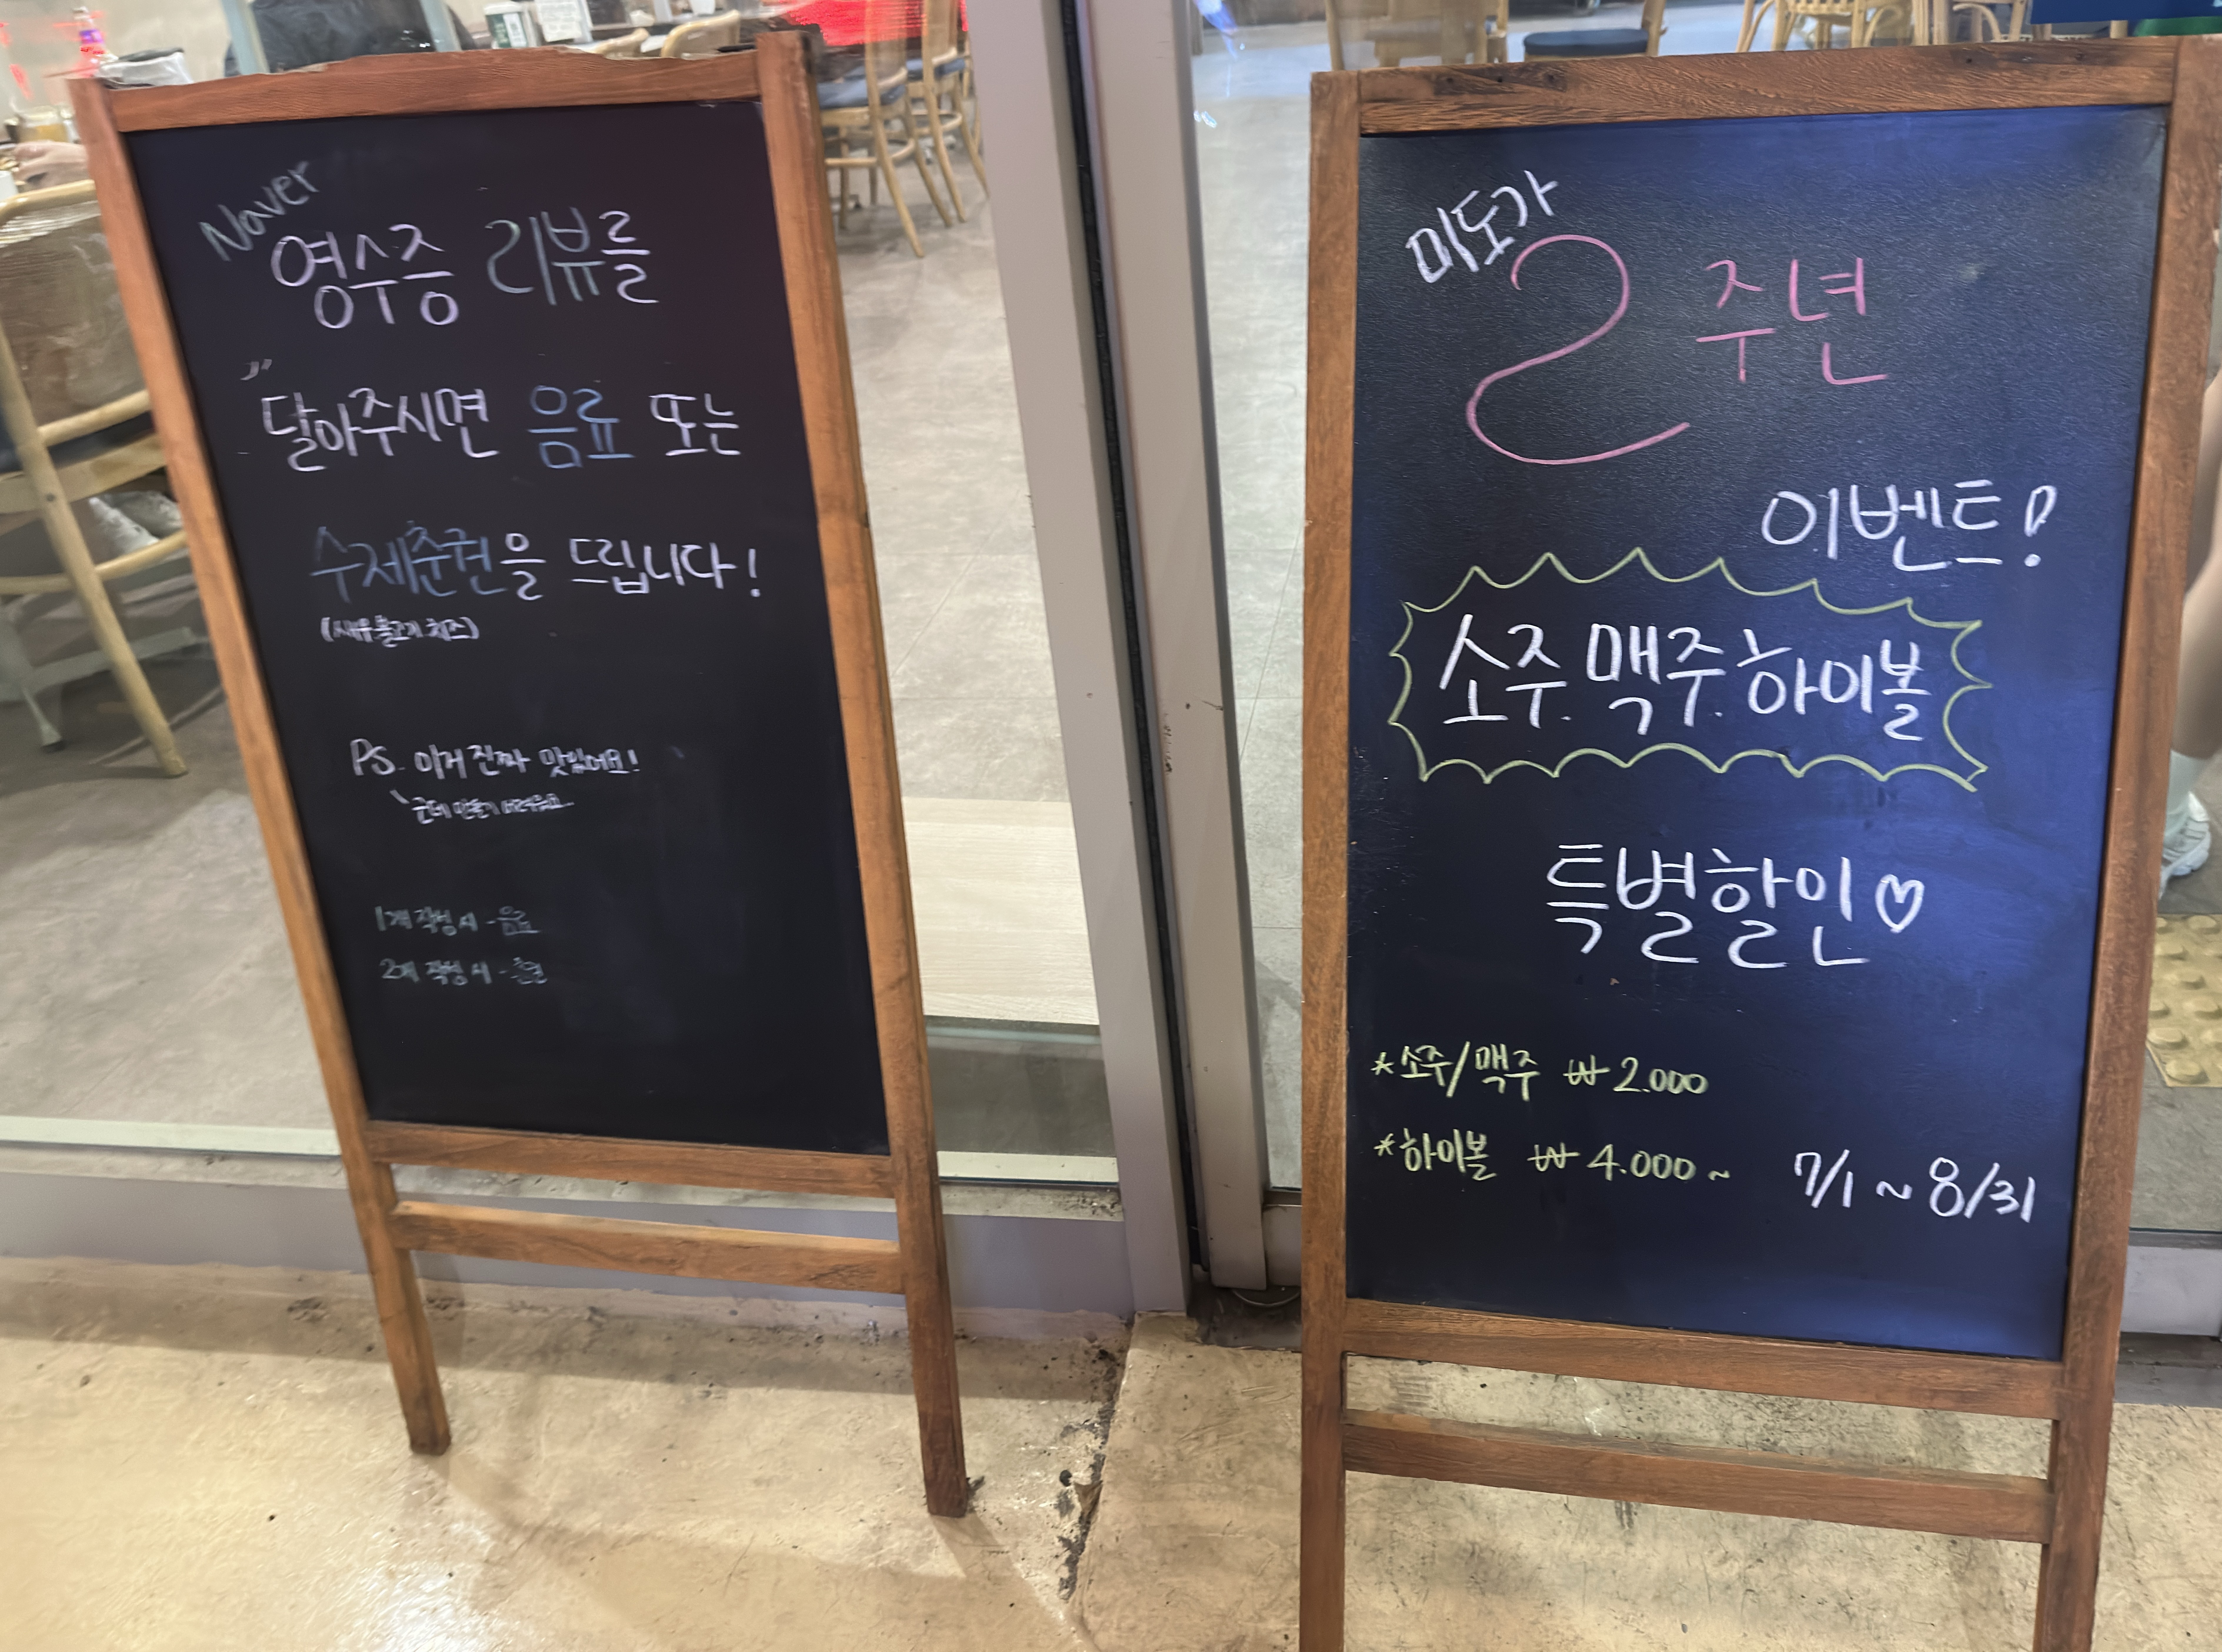 Naver
영수증 리뷰를
달아주시면 음료 또는
수제춘권을 드립니다!
(새우.불고기.치즈)
PS. 이거 진짜 맛있어요!
근데 만들기 어려워요..
1개 작성 시 - 음료
2개 작성 시 - 춘권
미도가
2주년
이벤트!
소주. 맥주. 하이볼
특별할인♡
*소주/맥주 ₩2.000
*하이볼 ₩4.000~
7/1 ~ 8/31